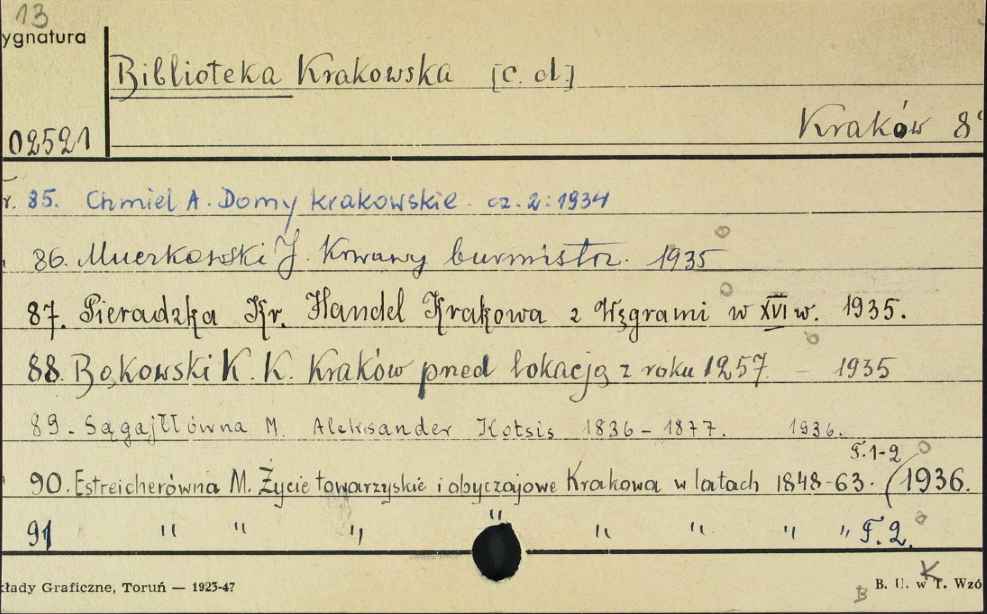 13
ygnatura
Biblioteka Krakowska [c. d.]
02521
Kraków 8°
r. 85. Chmiel A. Domy krakowskie. cz. 2: 1934
86. Muczkowski J. Krwawy burmistrz. 1935
87. Pieradzka Kr. Handel Krakowa z Węgrami w XVI w. 1935.
88. Bąkowski K. K. Kraków przed lokacją z roku 1257 - 1935
89. Sągajłłówna M. Aleksander Kotsis 1836-1877. 1936.
T. 1-2
90. Estreicherówna M. Życie towarzyskie i obyczajowe Krakowa w latach 1848-63. (1936.
91 " " " " " " " " T. 2.
kłady Graficzne, Toruń — 1923-47
B. U. w T. Wzó
K
B